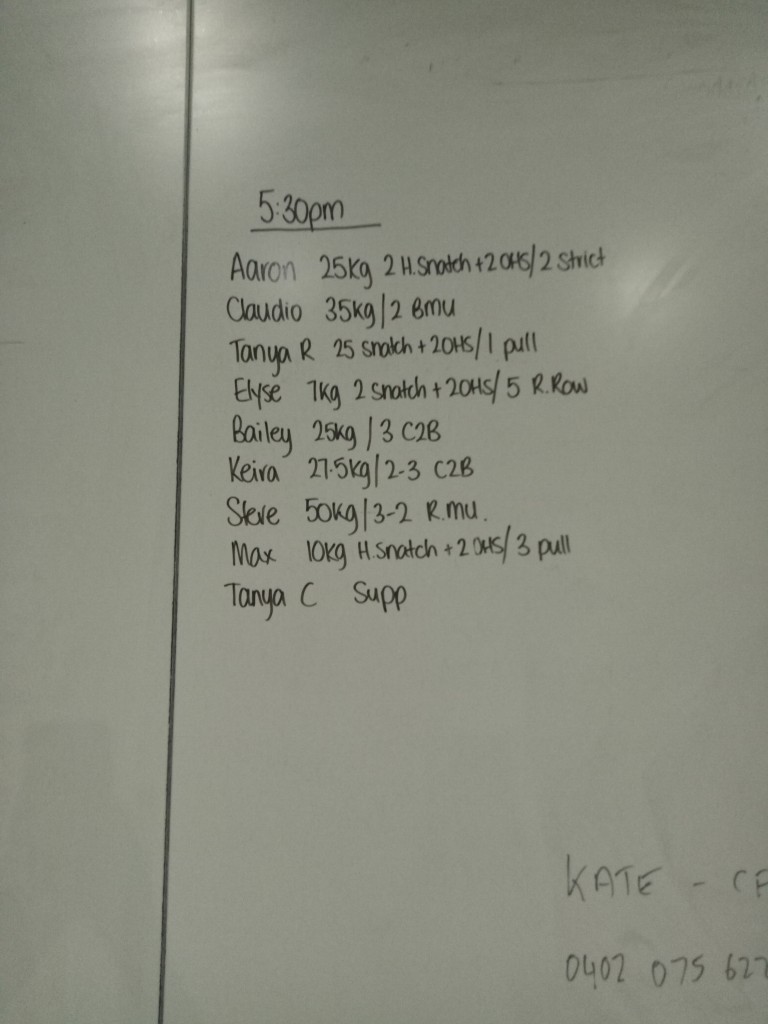 5:30pm
Aaron 25kg 2 H.Snatch + 2 OHS/2 Strict
Claudio 35kg/2 BMU
Tanya R 25 Snatch + 2OHS/1 pull
Elyse 7kg 2 Snatch + 2OHS/5 R.Row
Bailey 25kg/3 C2B
Keira 27.5kg/2-3 C2B
Steve 50kg/3-2 R.MU.
Max 10kg H.Snatch + 2 OHS/3 pull
Tanya C Supp
KATE - CF
0402 075 627